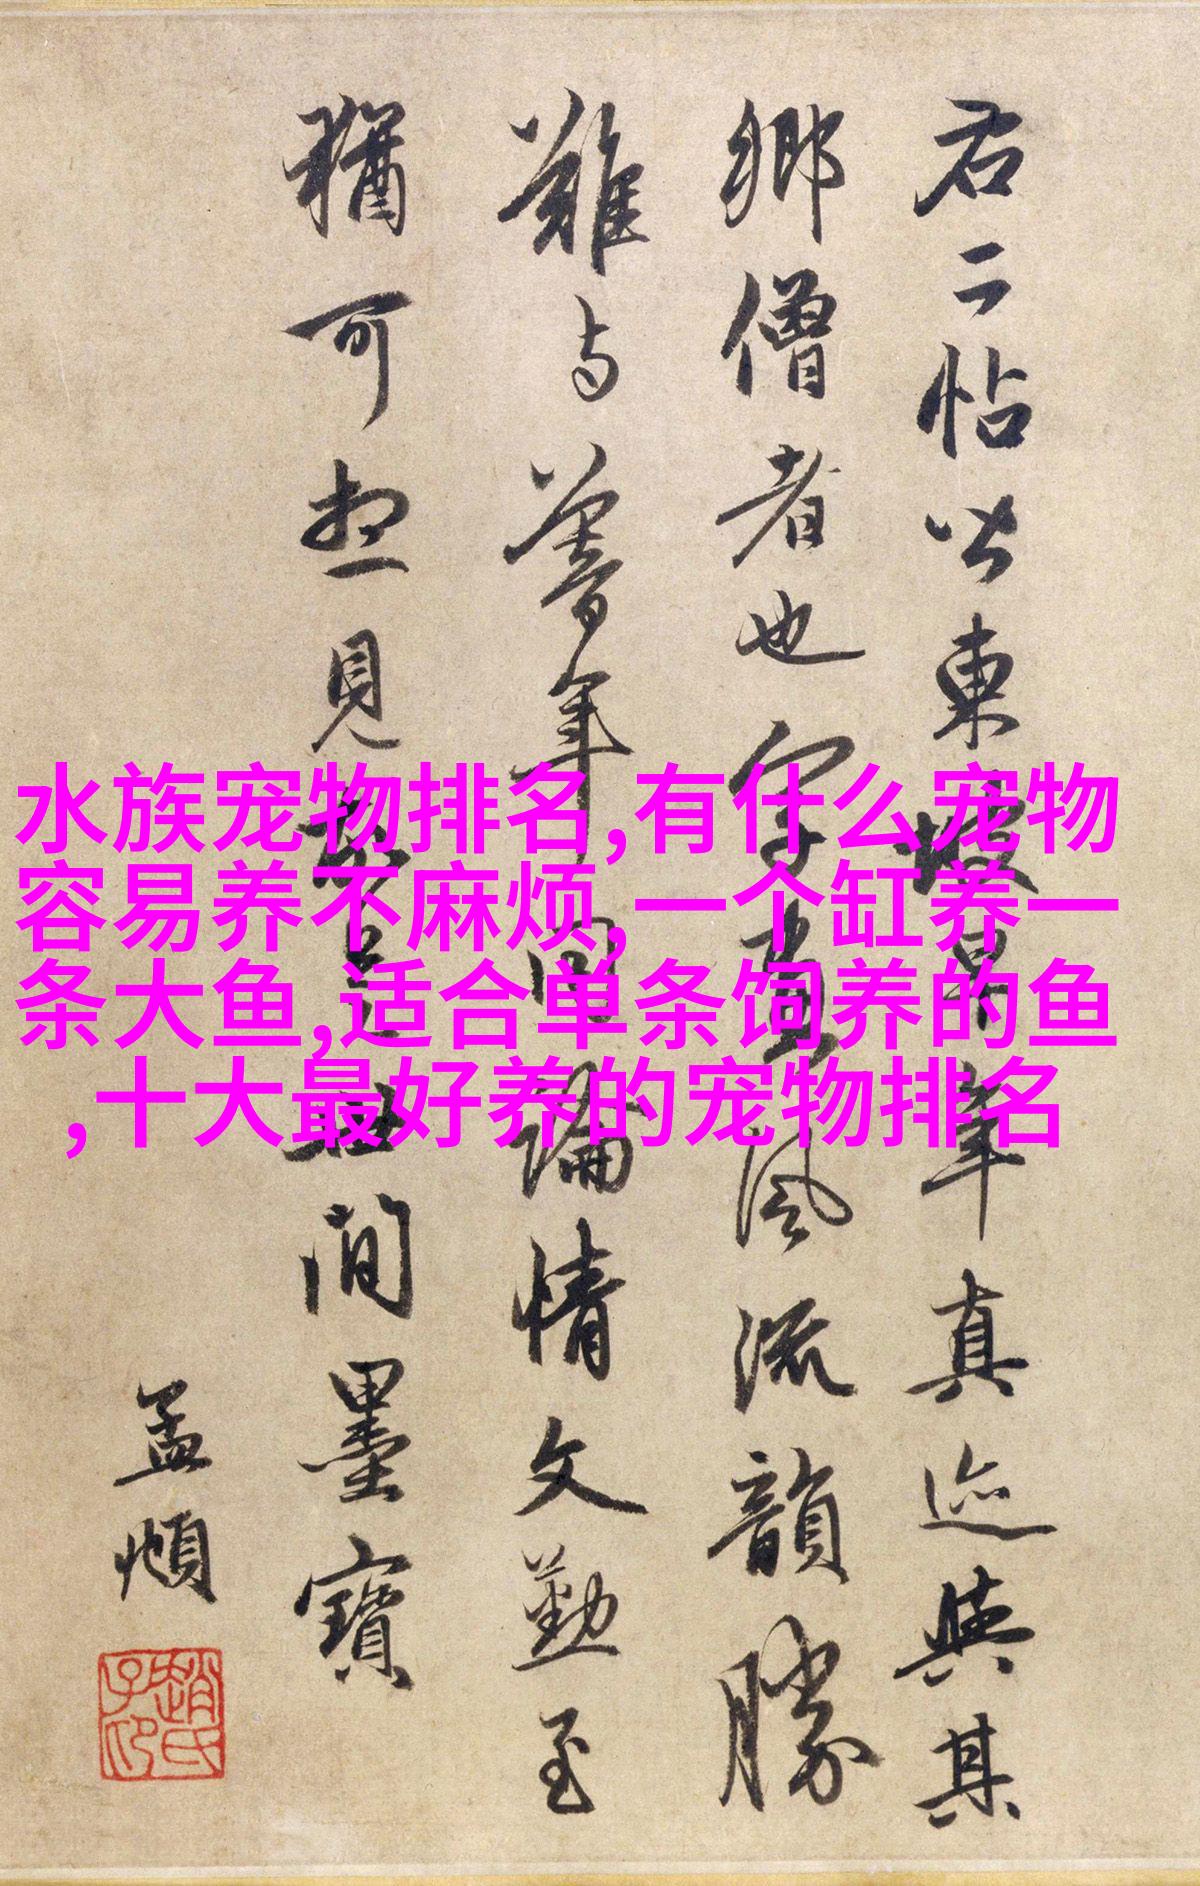 右二帖皆東坡早年真迹與其
鄉僧者也字畫風流韻勝
難與暮年同論情文勤至
猶可想見故是世間墨寶
孟頫
趙氏子昂
水族宠物排名,有什么宠物
容易养不麻烦,一个缸养一
条大鱼,适合单条饲养的鱼
,十大最好养的宠物排名